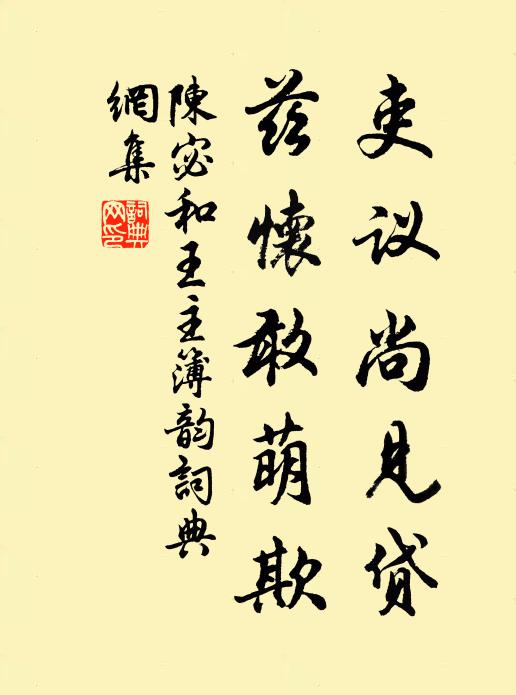 吏议尚见贷
兹懷敢萌欺
陳宓和王主簿韵詞典
網集
詞典网印